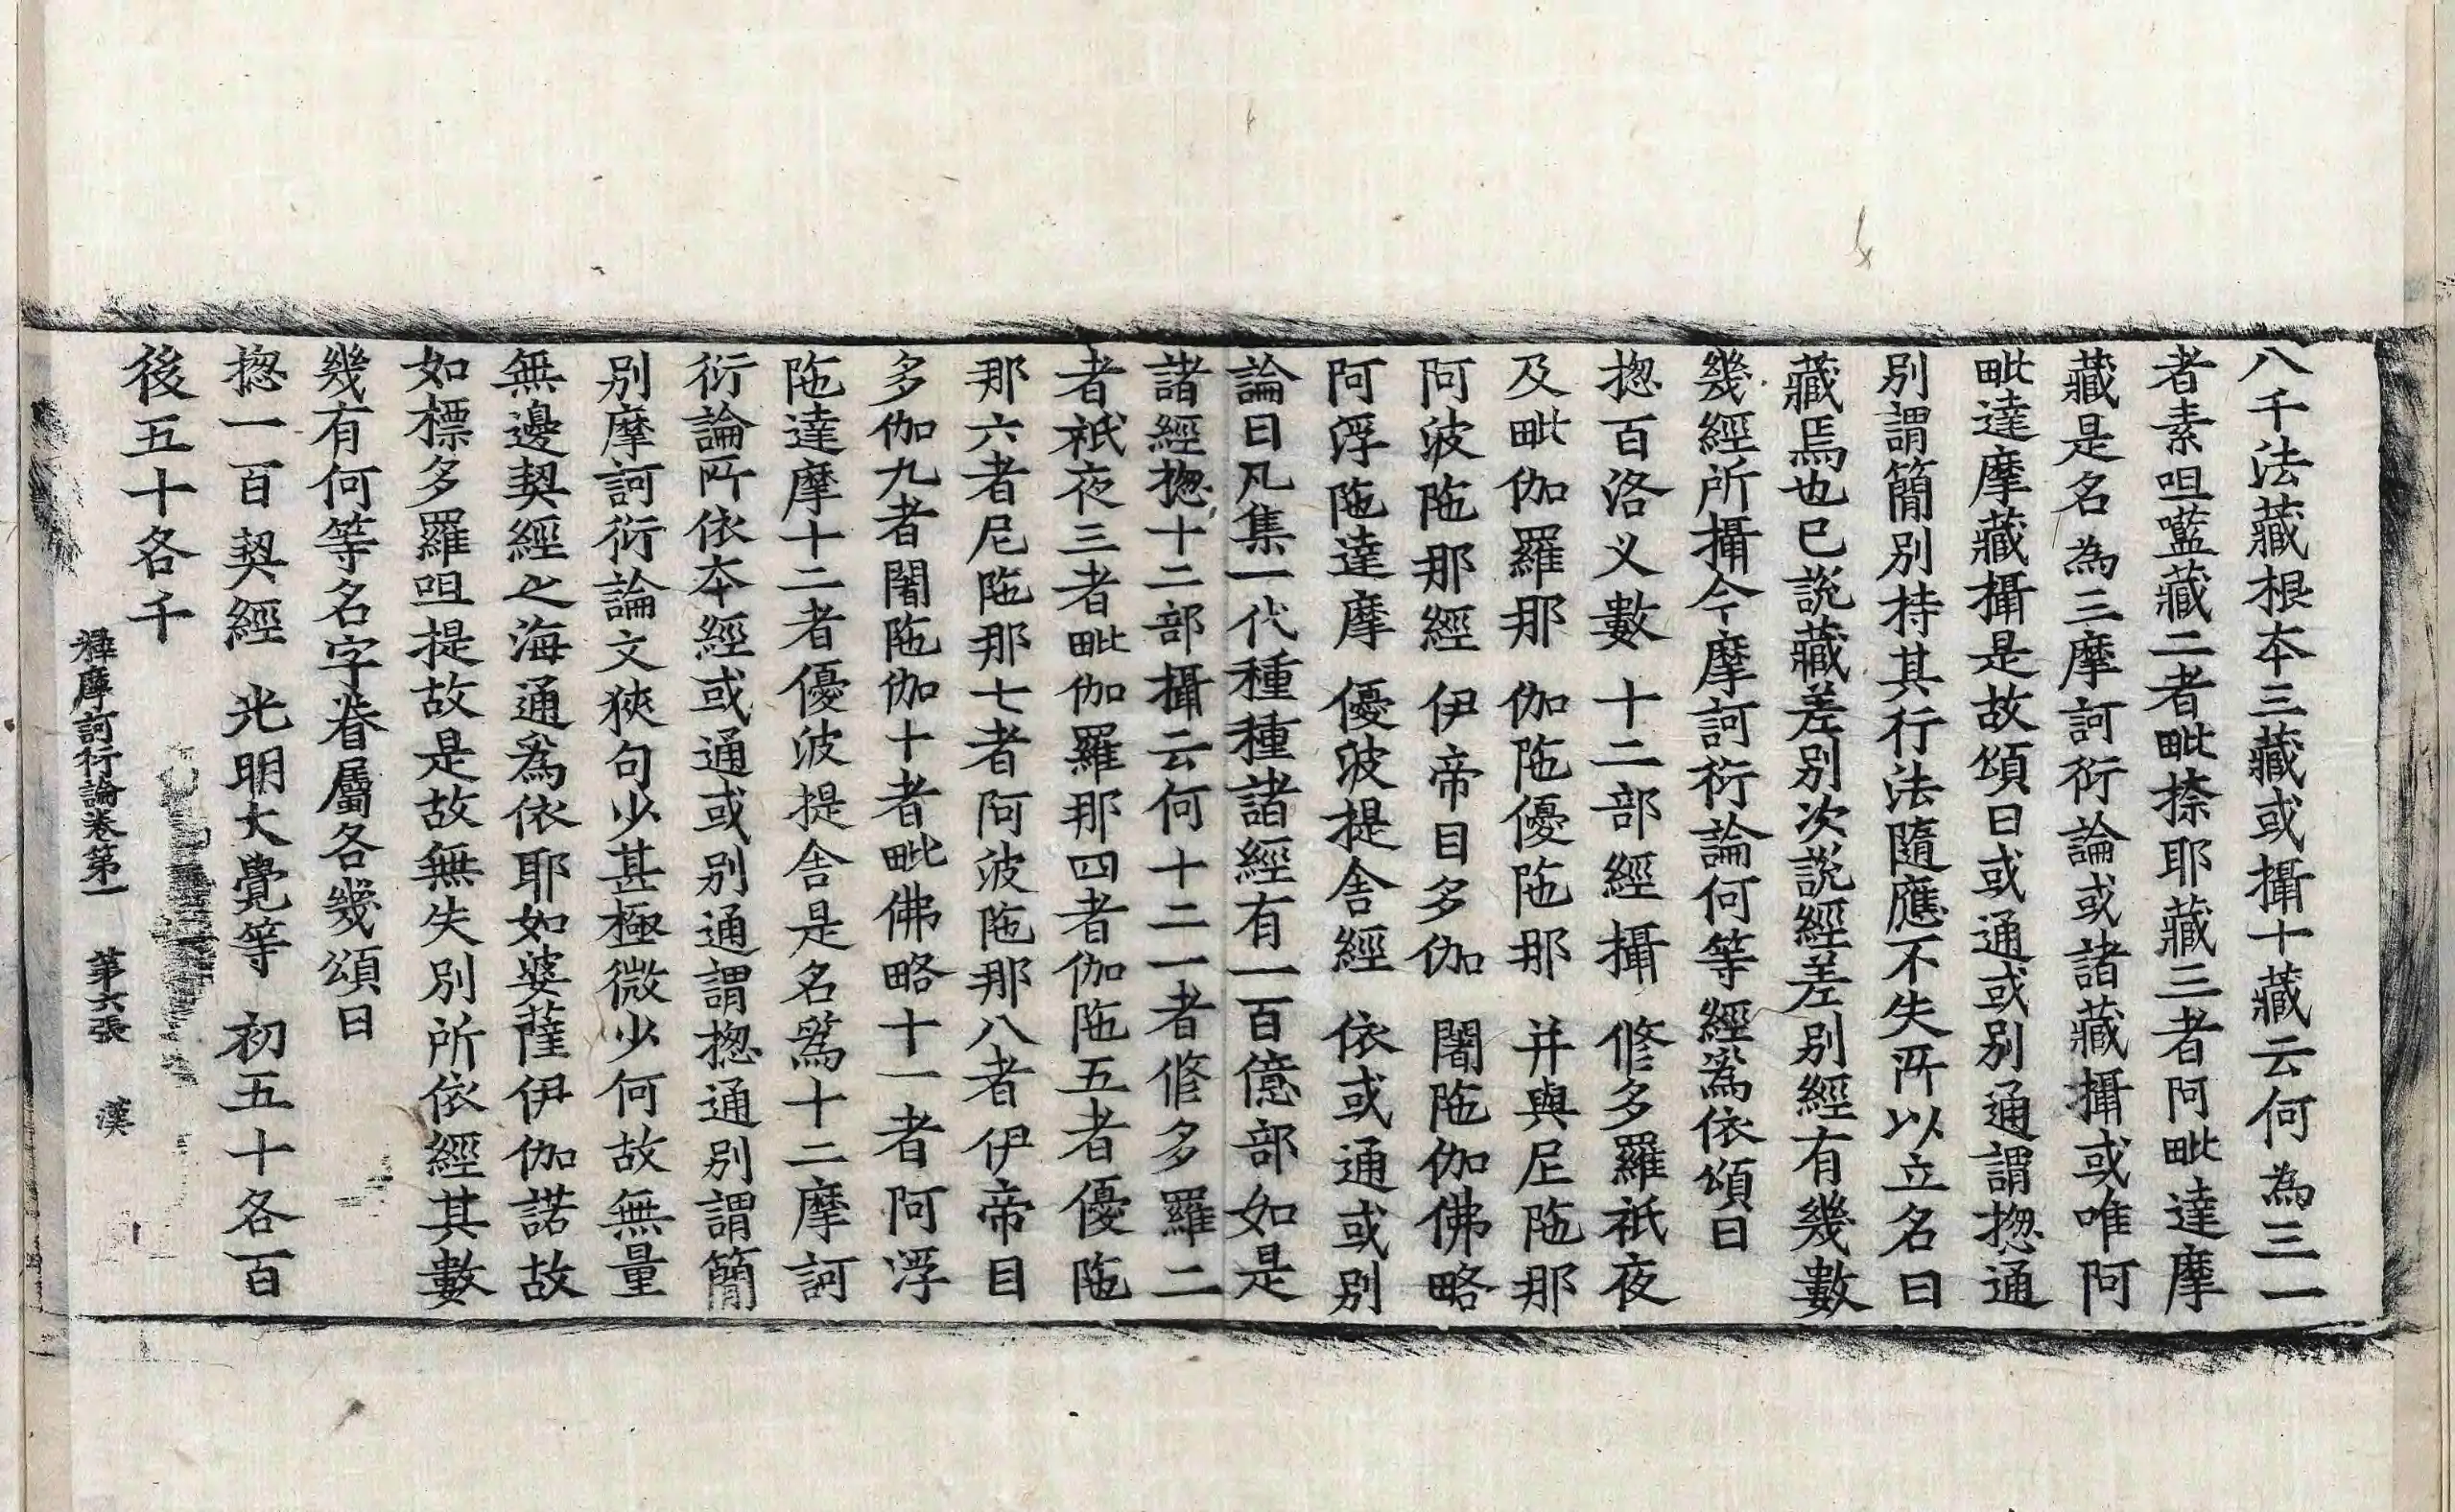 八千法藏根本三藏或攝十藏云何為三一
者素呾䌫藏二者毗捺耶藏三者阿毗達摩
藏是名為三摩訶衍論或諸藏攝或唯阿
毗達摩藏攝是故頌曰或通或别通謂揔通
别謂簡別持其行法隨應不失所以立名曰
藏焉也已說藏差别次說經差别經有幾數
幾經所攝今摩訶衍論何等經為依頌曰
揔百洛义數 十二部經攝 修多羅祇夜
及毗伽羅那 伽陁優陁那 并與尼陁那
阿波陁那經 伊帝目多伽 闍陁伽佛略
阿浮陁達摩 優波提舍經 依或通或别
論曰凡集一代種種諸經有一百億部如是
諸經揔十二部攝云何十二一者修多羅二
者祇夜三者毗伽羅那四者伽陁五者優陁
那六者尼陁那七者阿波陁那八者伊帝目
多伽九者闍陁伽十者毗佛略十一者阿浮
陁達摩十二者優波提舍是名為十二摩訶
衍論所依本經或通或别通謂揔通别謂簡
别摩訶衍論文狹句少甚極微少何故無量
無邊契經之海通為依耶如婆薩伊伽諾故
如標多羅呾提故是故無失別所依經其數
幾有何等名字眷屬各幾頌曰
揔一百契經 光明大覺等 初五十各百
後五十各千
釋摩訶衍論卷第一 第六張 漢